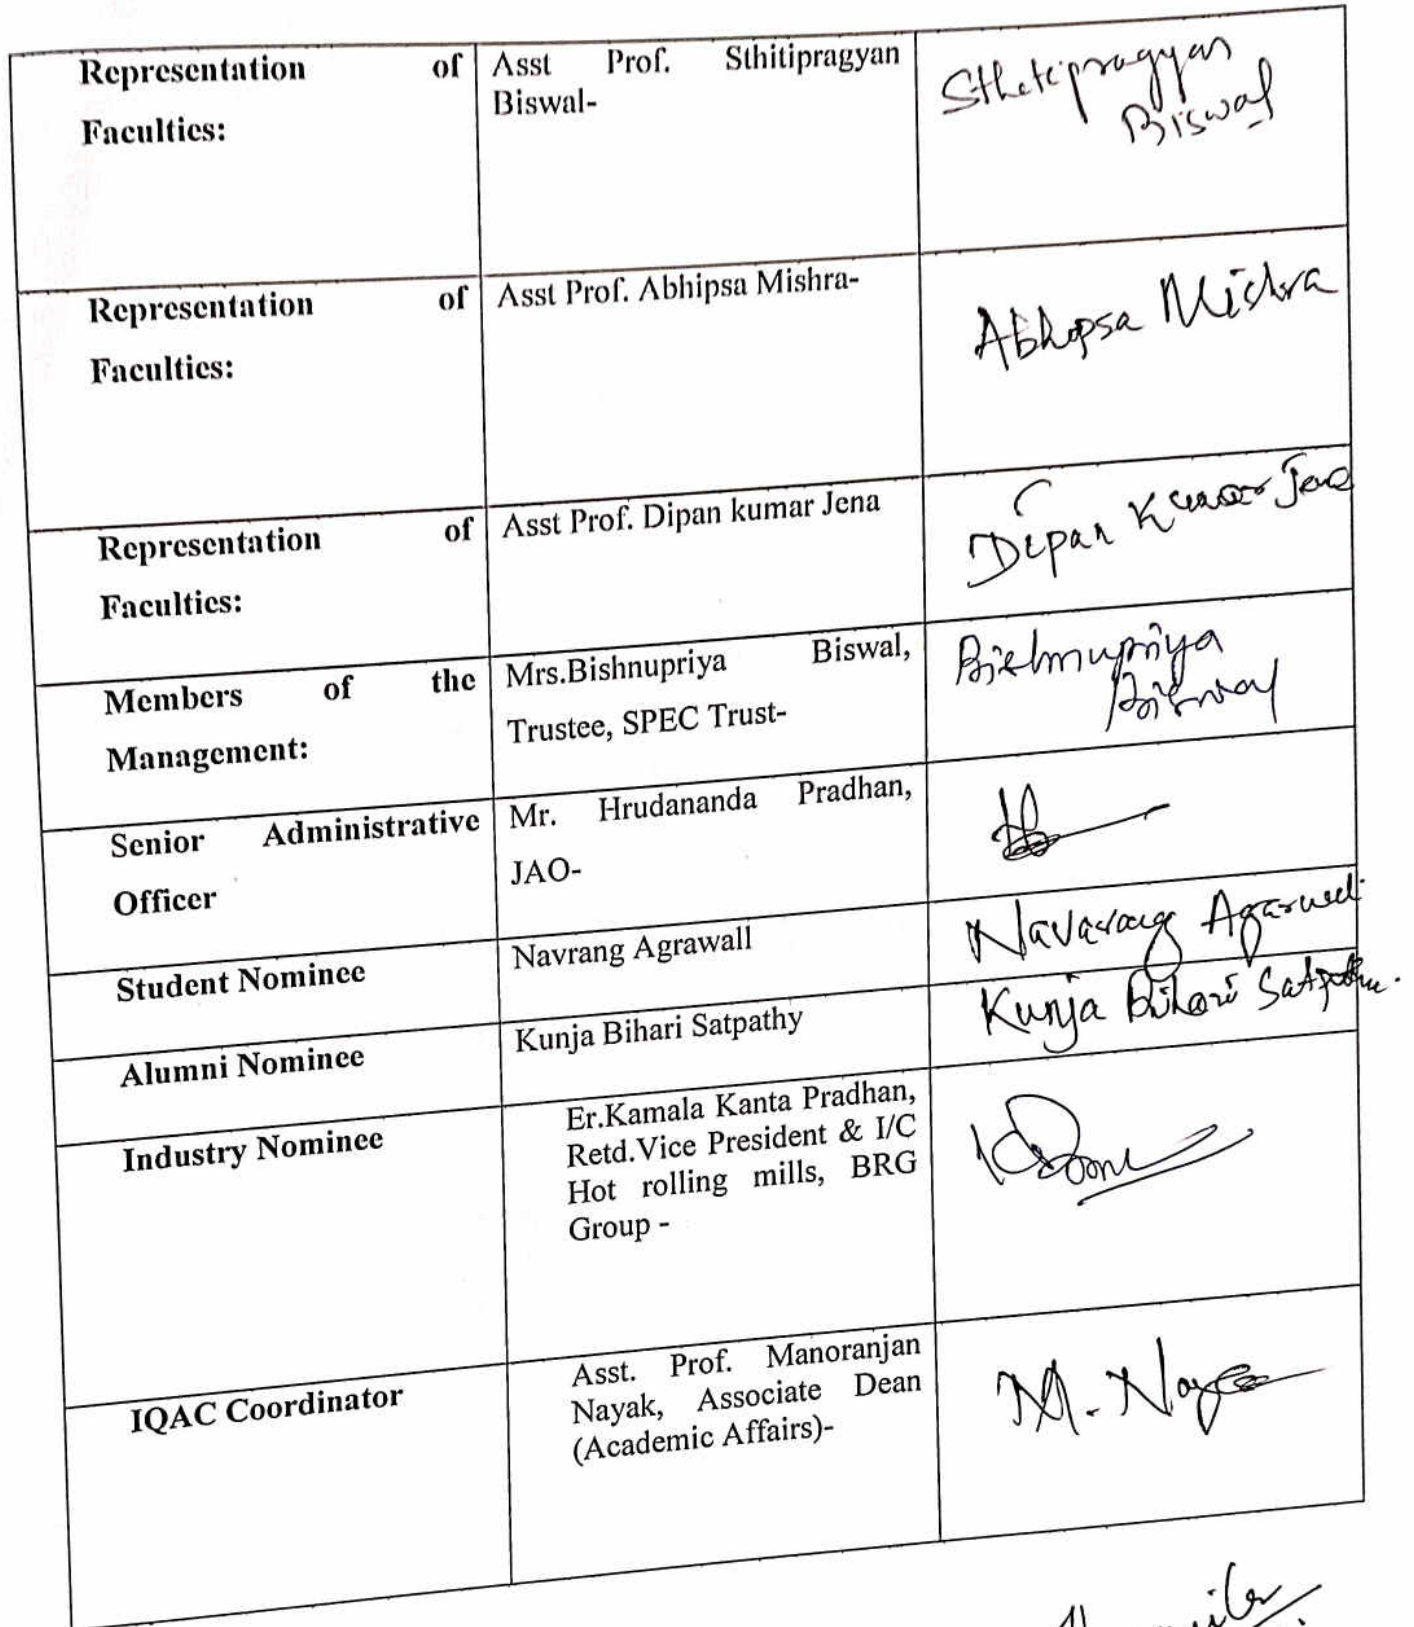 Representation of
Faculties:
Asst Prof. Sthitipragyan
Biswal-
Sthitipragyan
Biswal
Representation of
Faculties:
Asst Prof. Abhipsa Mishra-
Abhipsa Mishra
Representation of
Faculties:
Asst Prof. Dipan kumar Jena
Dipan Kumar Jena
Members of the
Management:
Mrs.Bishnupriya Biswal,
Trustee, SPEC Trust-
Bishnupriya
Biswal
Senior Administrative
Officer
Mr. Hrudananda Pradhan,
JAO-
Student Nominee
Navrang Agrawall
Navarang Agarwal
Alumni Nominee
Kunja Bihari Satpathy
Kunja Bihari Satpathy.
Industry Nominee
Er.Kamala Kanta Pradhan,
Retd.Vice President & I/C
Hot rolling mills, BRG
Group -
IQAC Coordinator
Asst. Prof. Manoranjan
Nayak, Associate Dean
(Academic Affairs)-
M. Nayak